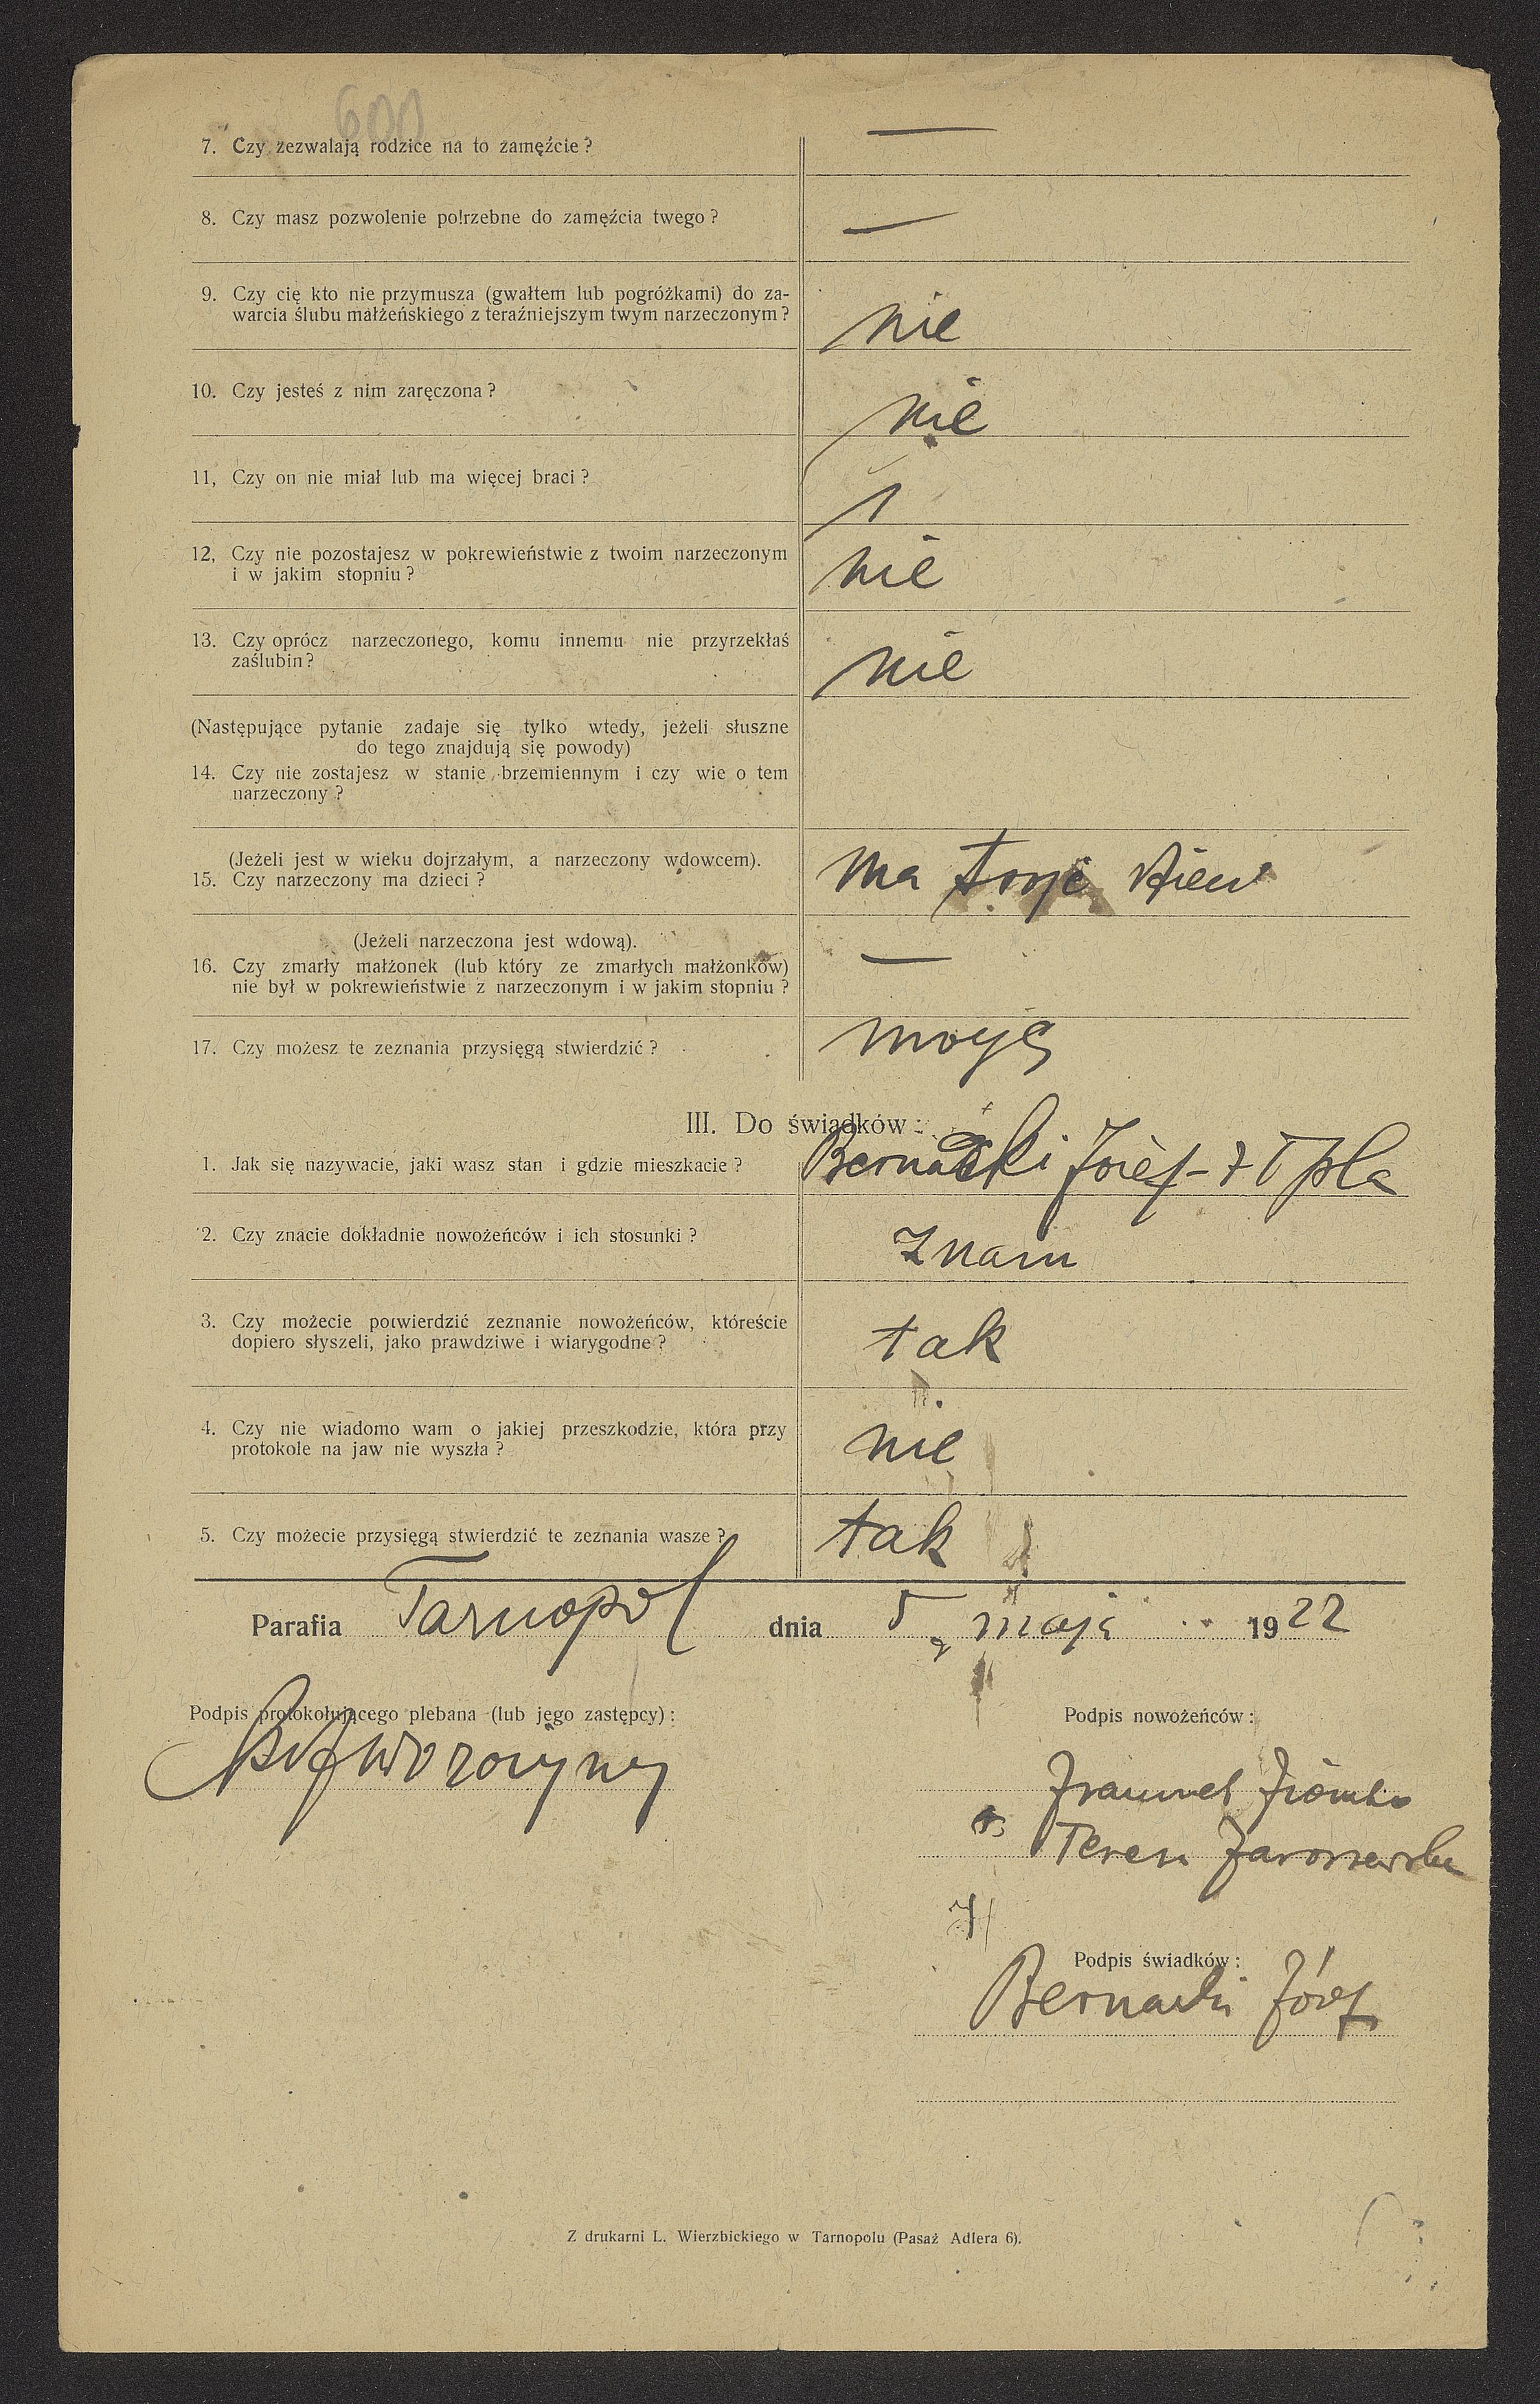 600
7. Czy zezwalają rodzice na to zamęźcie? —
8. Czy masz pozwolenie potrzebne do zamęźcia twego? —
9. Czy cię kto nie przymusza (gwałtem lub pogróżkami) do za-
warcia ślubu małżeńskiego z teraźniejszym twym narzeczonym? nie
10. Czy jesteś z nim zaręczona? nie
11, Czy on nie miał lub ma więcej braci? 1
12, Czy nie pozostajesz w pokrewieństwie z twoim narzeczonym
i w jakim stopniu? nie
13. Czy oprócz narzeczonego, komu innemu nie przyrzekłaś
zaślubin? nie
(Następujące pytanie zadaje się tylko wtedy, jeżeli słuszne
do tego znajdują się powody)
14. Czy nie zostajesz w stanie brzemiennym i czy wie o tem
narzeczony?
(Jeżeli jest w wieku dojrzałym, a narzeczony wdowcem).
15. Czy narzeczony ma dzieci? ma troje dzieci
(Jeżeli narzeczona jest wdową).
16. Czy zmarły małżonek (lub który ze zmarłych małżonków) —
nie był w pokrewieństwie z narzeczonym i w jakim stopniu?
17. Czy możesz te zeznania przysięgą stwierdzić? mogę
III. Do świadków:
1. Jak się nazywacie, jaki wasz stan i gdzie mieszkacie? Bernacki Józef - z Tpla
2. Czy znacie dokładnie nowożeńców i ich stosunki? Znam
3. Czy możecie potwierdzić zeznanie nowożeńców, któreście
dopiero słyszeli, jako prawdziwe i wiarygodne? tak
4. Czy nie wiadomo wam o jakiej przeszkodzie, która przy
protokole na jaw nie wyszła? nie
5. Czy możecie przysięgą stwierdzić te zeznania wasze? tak
Parafia Tarnopol dnia 5 maja 1922
Podpis protokołującego plebana (lub jego zastępcy): Podpis nowożeńców:
Teresa Jaroszewska
Podpis świadków:
Bernacki Józef
Z drukarni L. Wierzbickiego w Tarnopolu (Pasaż Adlera 6).